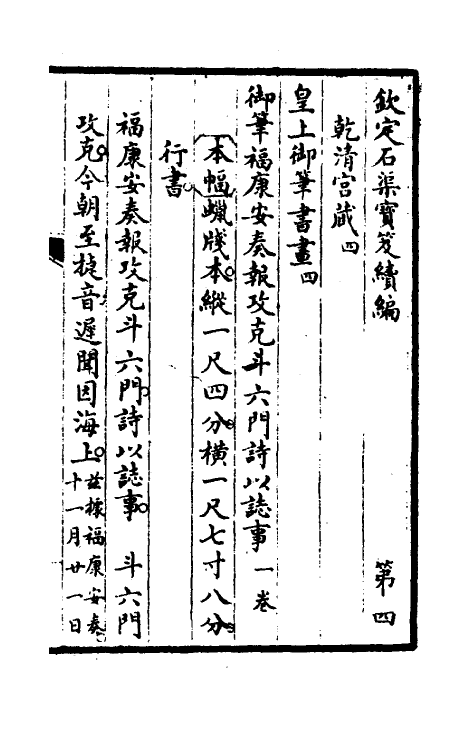 欽定石渠寶笈續編 第四
乾清宮藏四
皇上御筆書畫四
御筆福康安奏報攻克斗六門詩以誌事一卷
本幅蠟牋本縱一尺四分橫一尺七寸八分
行書
福康安奏報攻克斗六門詩以誌事 斗六門
攻克今朝至捷音遲聞因海上茲據福康安奏
十一月廿一日